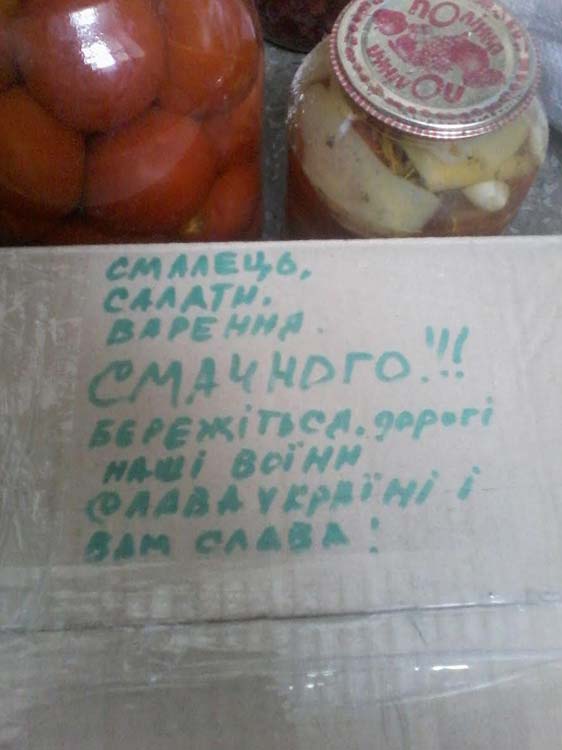 ПОлінка
ПОлінки
СМАЛЕЦЬ,
САЛАТИ.
ВАРЕННЯ.
СМАЧНОГО!!!
БЕРЕЖІТЬСЯ. дорогі
НАШІ ВОЇНИ
СЛАВА УКРАЇНІ І
ВАМ СЛАВА!